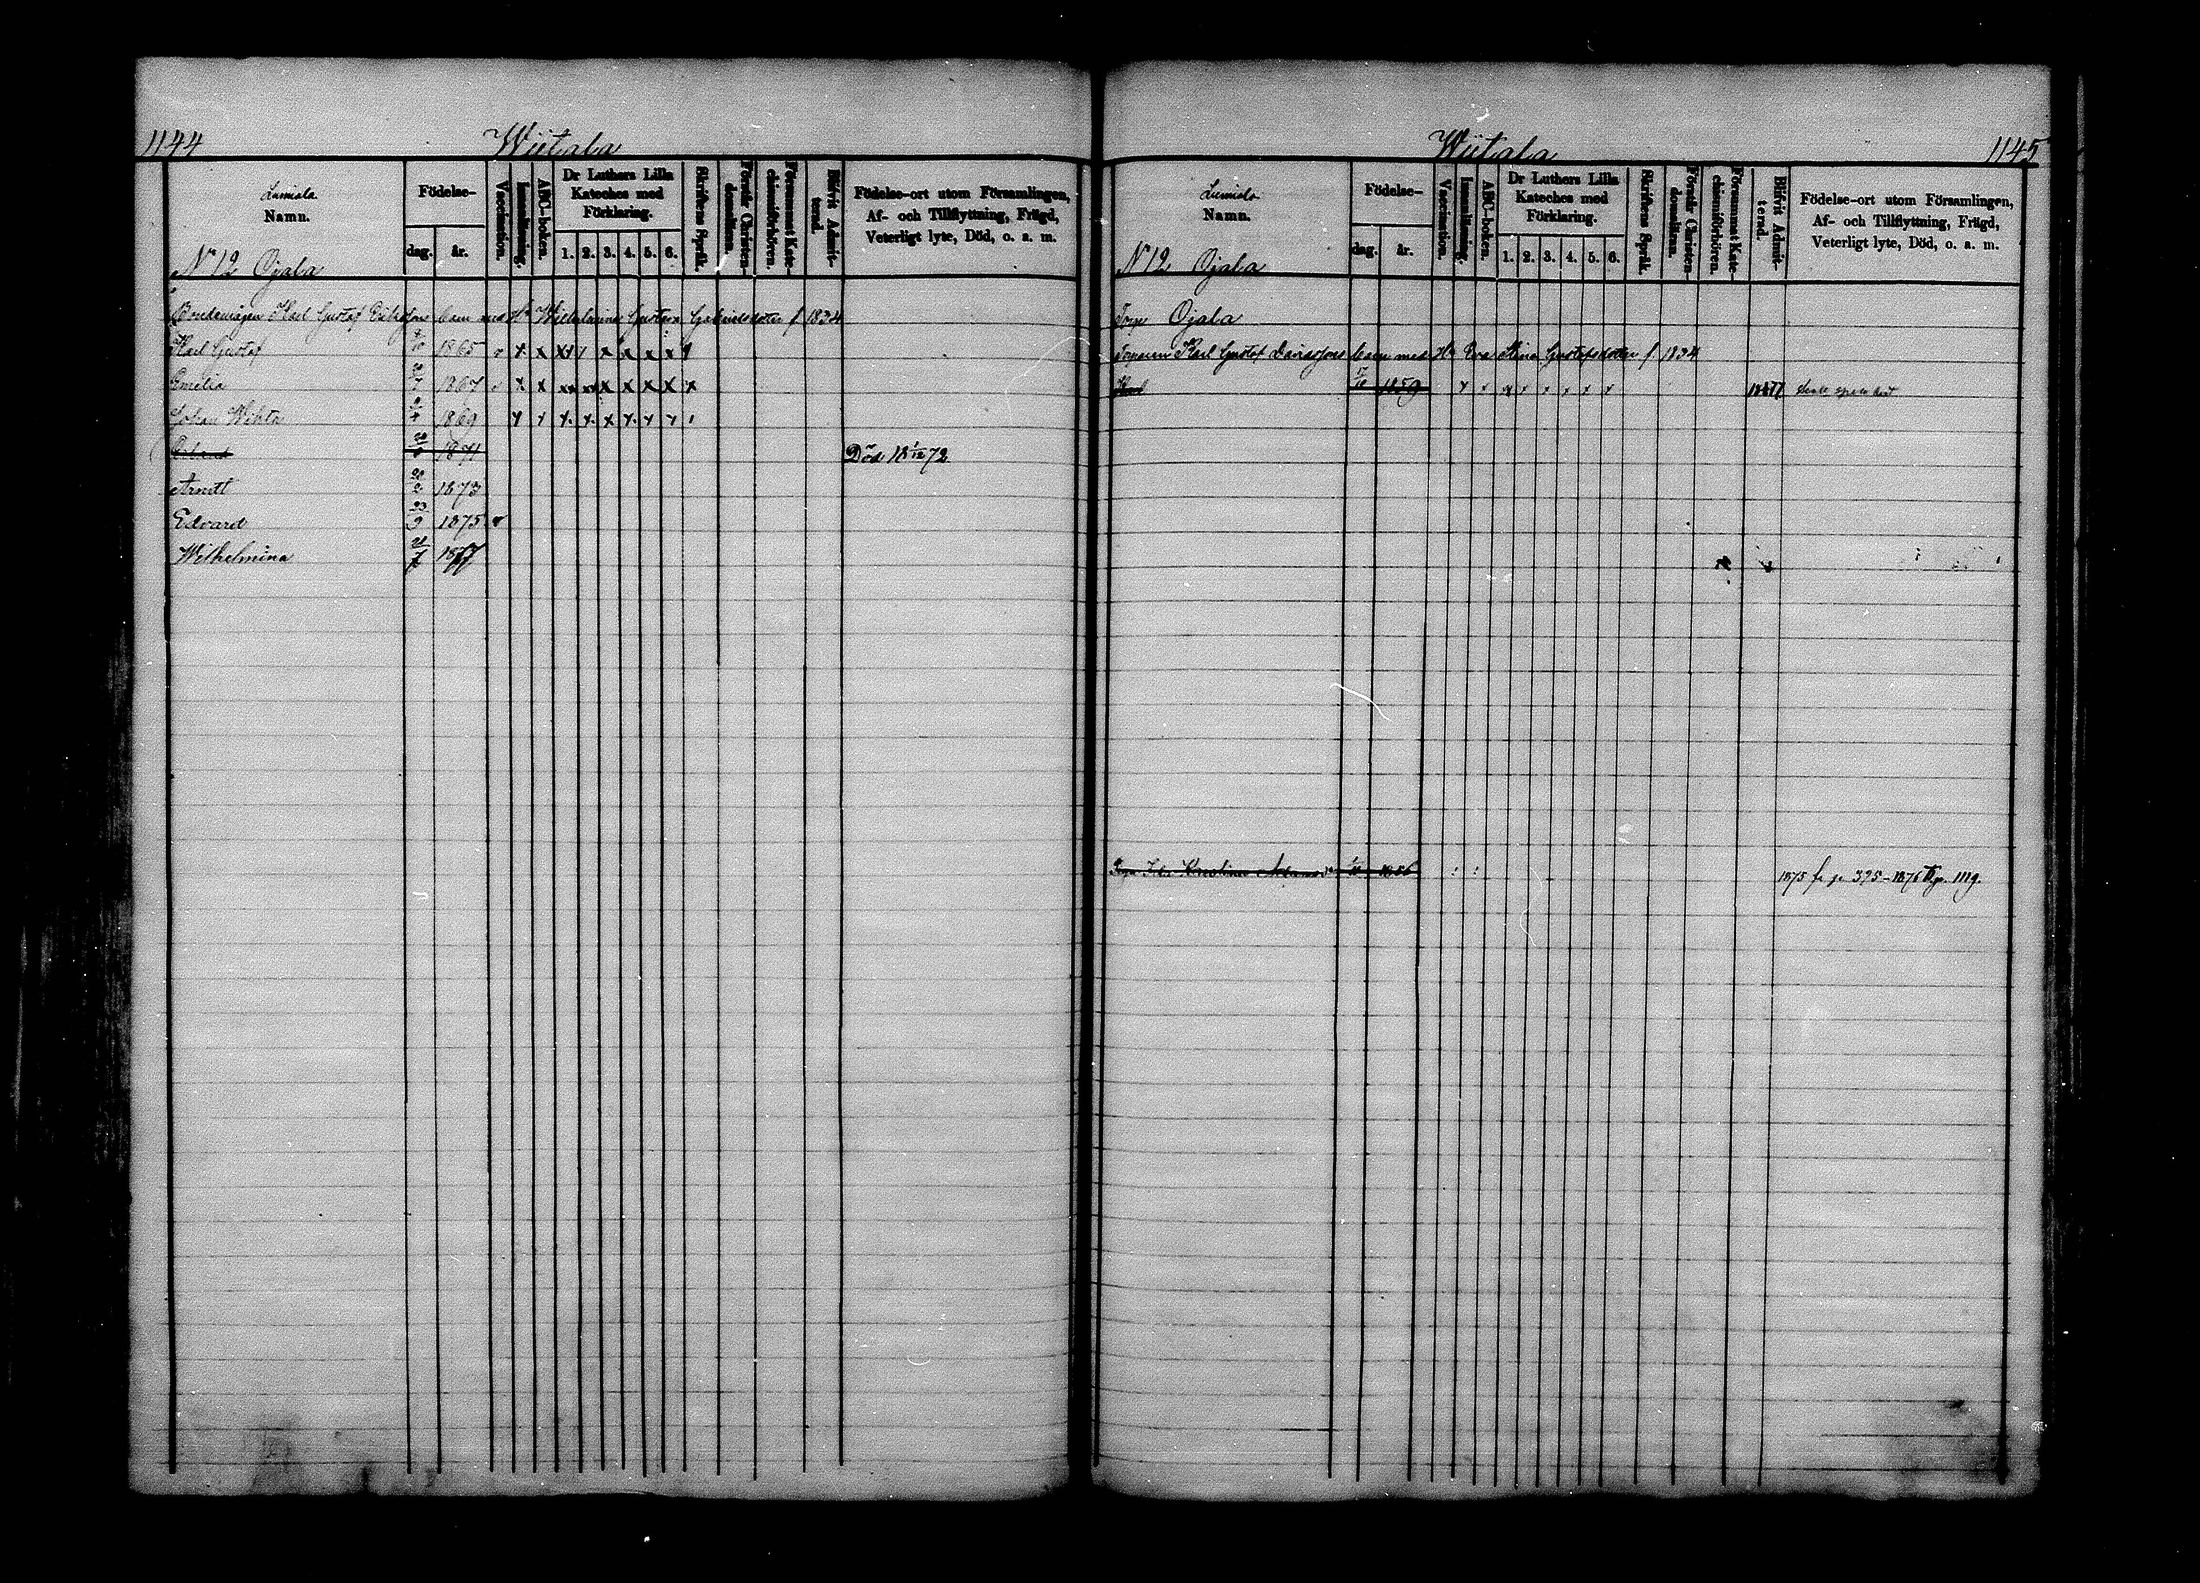 1144
Wiitala
Lumiala
Namn.
Födelse-
dag.
år.
Vaccination.
Innanläsning.
ABC-boken.
Dr Luthers Lilla
Kateches med
Förklaring.
1. 2. 3. 4. 5. 6.
Skriftens Språk.
Förstår Christen-
domsläran.
Försummat Kate-
chismiförhören.
Blifvit Admit-
terad.
Födelse-ort utom Församlingen,
Af- och Tillflyttning, Frägd,
Veterligt lyte, Död, o. a. m.
N 12 Ojala
Karl Gustaf barn med Hu Wilhelmina Gustava Gabrielsdotter f 1834
Karl Gustaf 1865 x x x x x x x
Emelia 1867 x x x x x x x x x
Johan Wihtr 1869 x x x x x x x x
1871 Död 18 1/12 72
Arvid 1873
Edvard 23/9 1875 v
Wilhelmina 1877
Wiitala
1145
Lumiala
Namn.
Födelse-
dag.
år.
Vaccination.
Innanläsning.
ABC-boken.
Dr Luthers Lilla
Kateches med
Förklaring.
1. 2. 3. 4. 5. 6.
Skriftens Språk.
Förstår Christen-
domsläran.
Försummat Kate-
chismiförhören.
Blifvit Admit-
terad.
Födelse-ort utom Församlingen,
Af- och Tillflyttning, Frägd,
Veterligt lyte, Död, o. a. m.
N 12 Ojala
Torp Ojala
Torparen Karl Gustaf Davidsons barn med Hu Eva Stina Gustafsdotter f 1834
Karl 1859 x x x x x x x x 1877
Ida Kristina Adamsd 1856 1875 fr p 395 - 1876 T p. 1119.